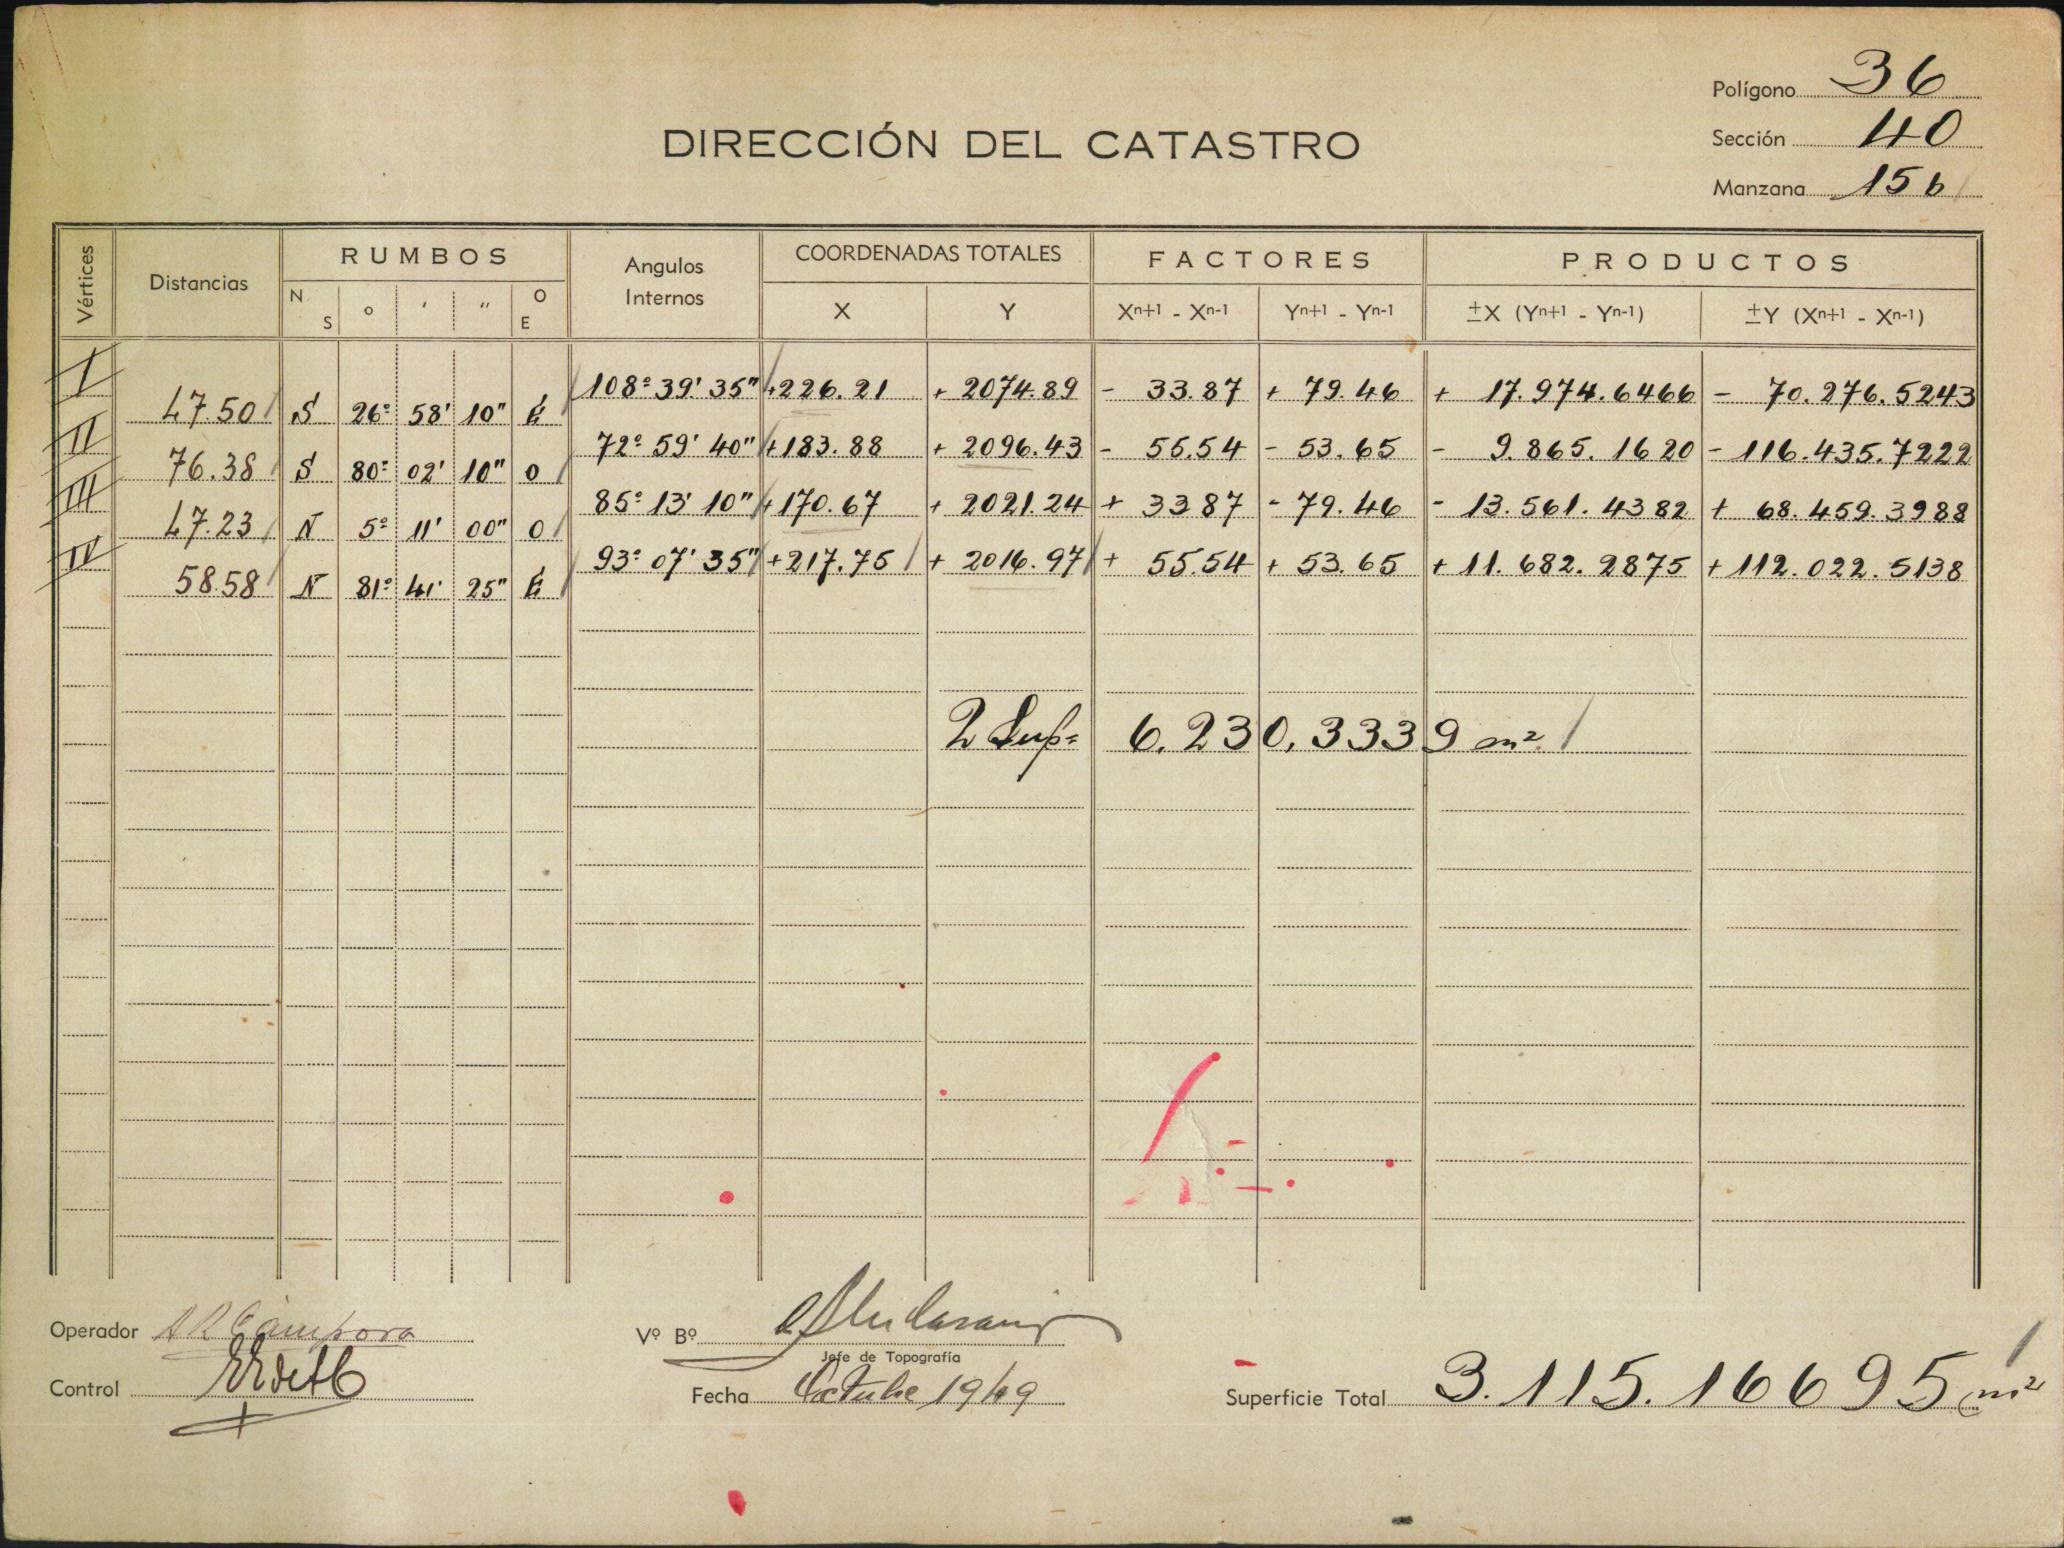 Polígono 36
DIRECCIÓN DEL CATASTRO
Sección 40
Manzana 15 b
Vértices Distancias RUMBOS Angulos Internos COORDENADAS TOTALES FACTORES PRODUCTOS
N S ° ′ ″ O E X Y Xn+1 - Xn-1 Yn+1 - Yn-1 ±X (Yn+1 - Yn-1) ±Y (Xn+1 - Xn-1)
I 108° 39' 35" +226.21 + 2074.89 - 33.87 + 79.46 + 17.974.6466 - 70.276.5243
47.50 S 26° 58' 10" E
II 72° 59' 40" +183.88 + 2096.43 - 55.54 - 53.65 - 9.865.1620 - 116.435.7222
76.38 S 80° 02' 10" O
III 85° 13' 10" +170.67 + 2021.24 + 33 87 - 79.46 - 13.561.4382 + 68.459.3988
47.23 N 5° 11' 00" O
IV 93° 07' 35" +217.75 + 2016.97 + 55.54 + 53.65 + 11.682.2875 + 112.022.5138
58.58 N 81° 41' 25" E
2 Sup= 6.230,3339 m²
Operador A R Cámpora
Vº Bº
Jefe de Topografía
Control
Fecha Octubre 1949
Superficie Total 3.115.16695 m²